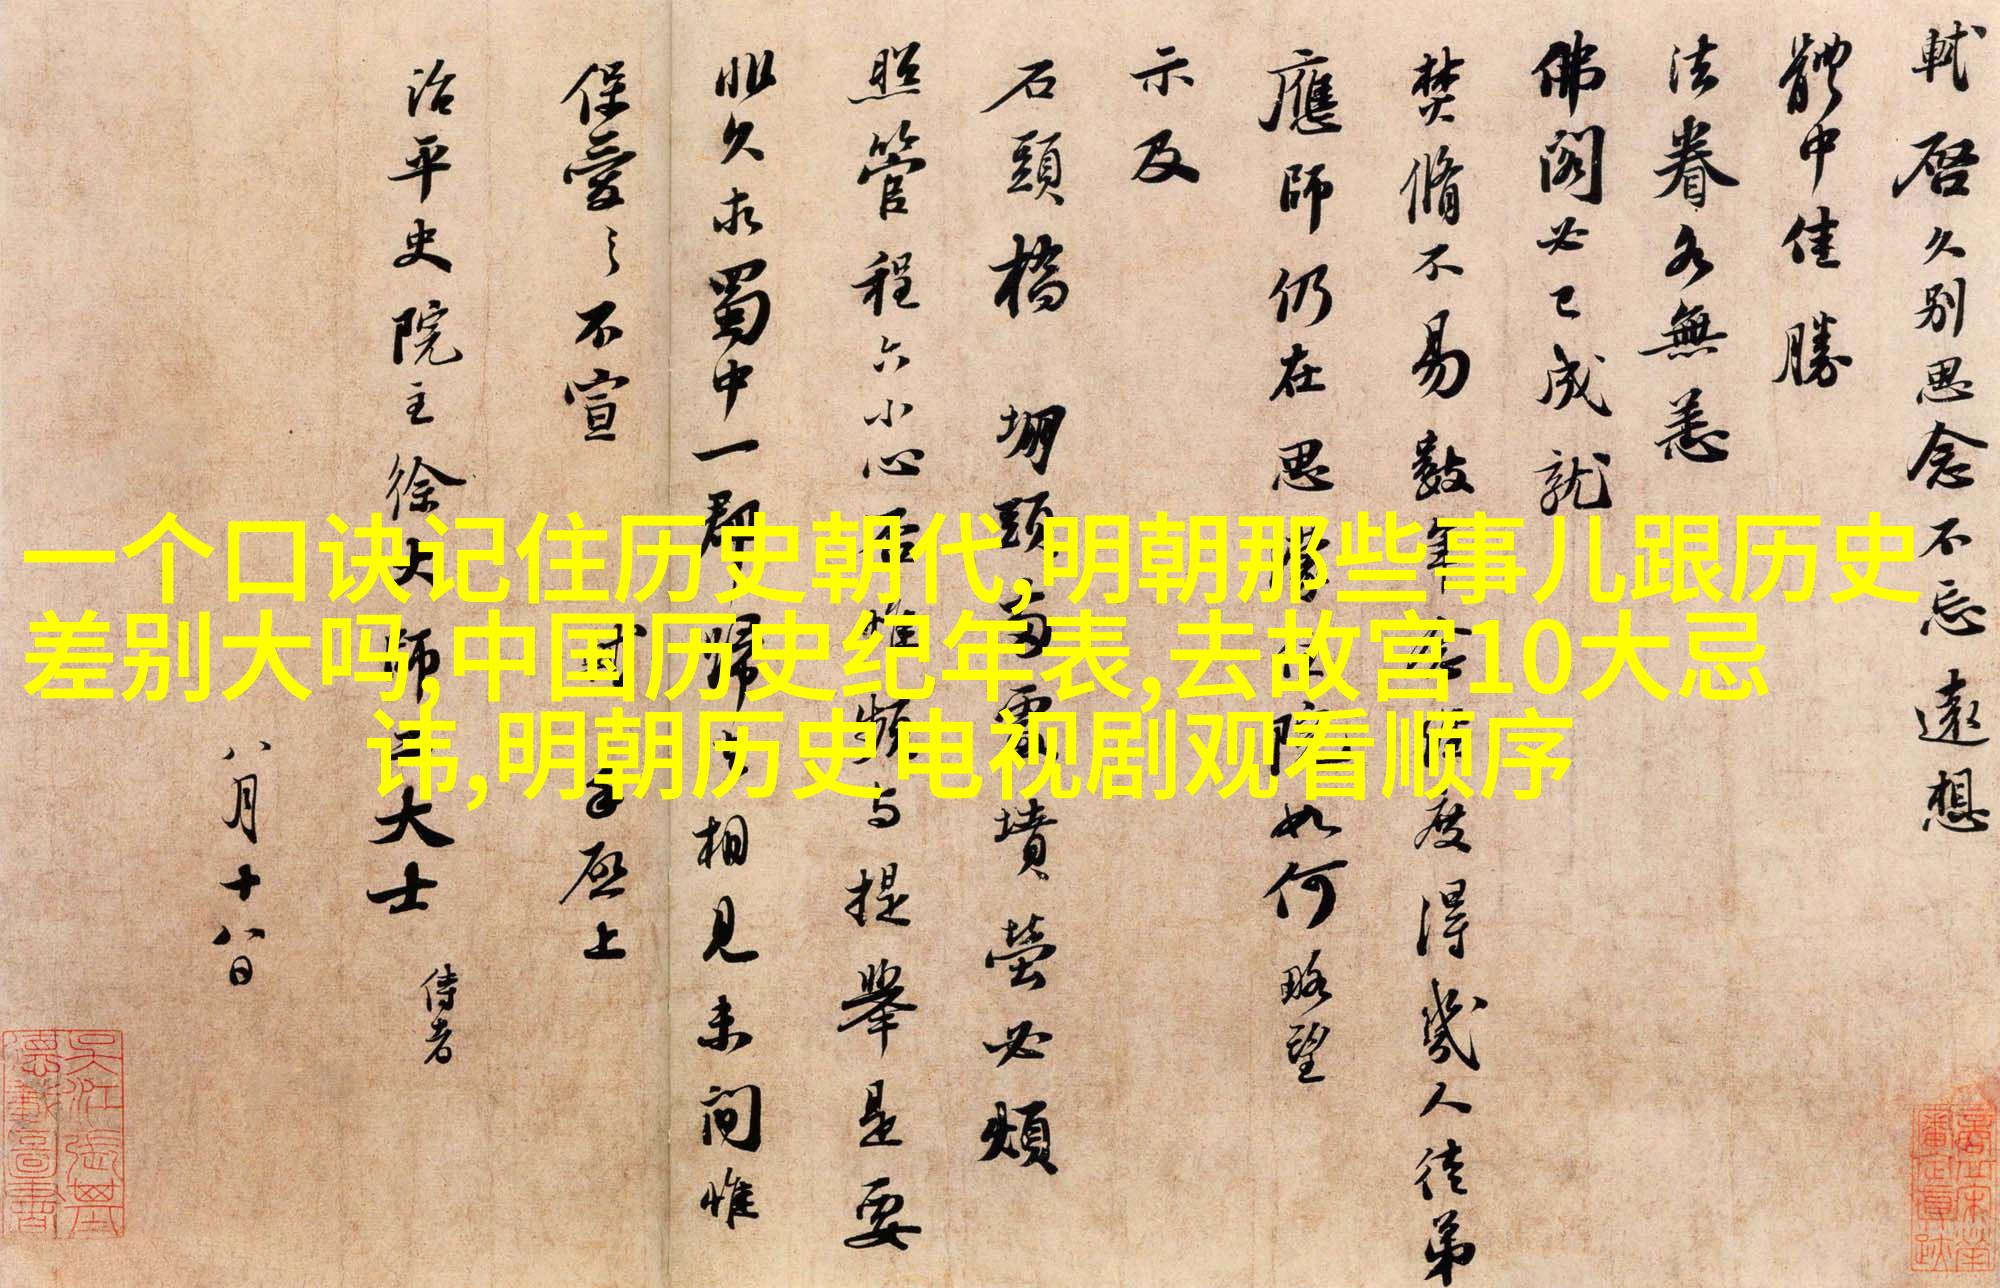 軾啓久别思念不忘遠想
體中佳勝
法眷各無恙
佛閣必已成就
焚脩不易數年念經度得幾人徒弟
應師仍在思濛住院如何略望
示及
石頭橋堋頭兩處墳塋必煩
照管程六小心否惟頻与提舉是要
非久求蜀中一郡歸去相見未間惟
保愛之不宣軾手啓上
治平史院主徐大師二大士侍者
八月十八日
一个口诀记住历史朝代,明朝那些事儿跟历史
差别大吗,中国历史纪年表,去故宫10大忌
讳,明朝历史电视剧观看顺序